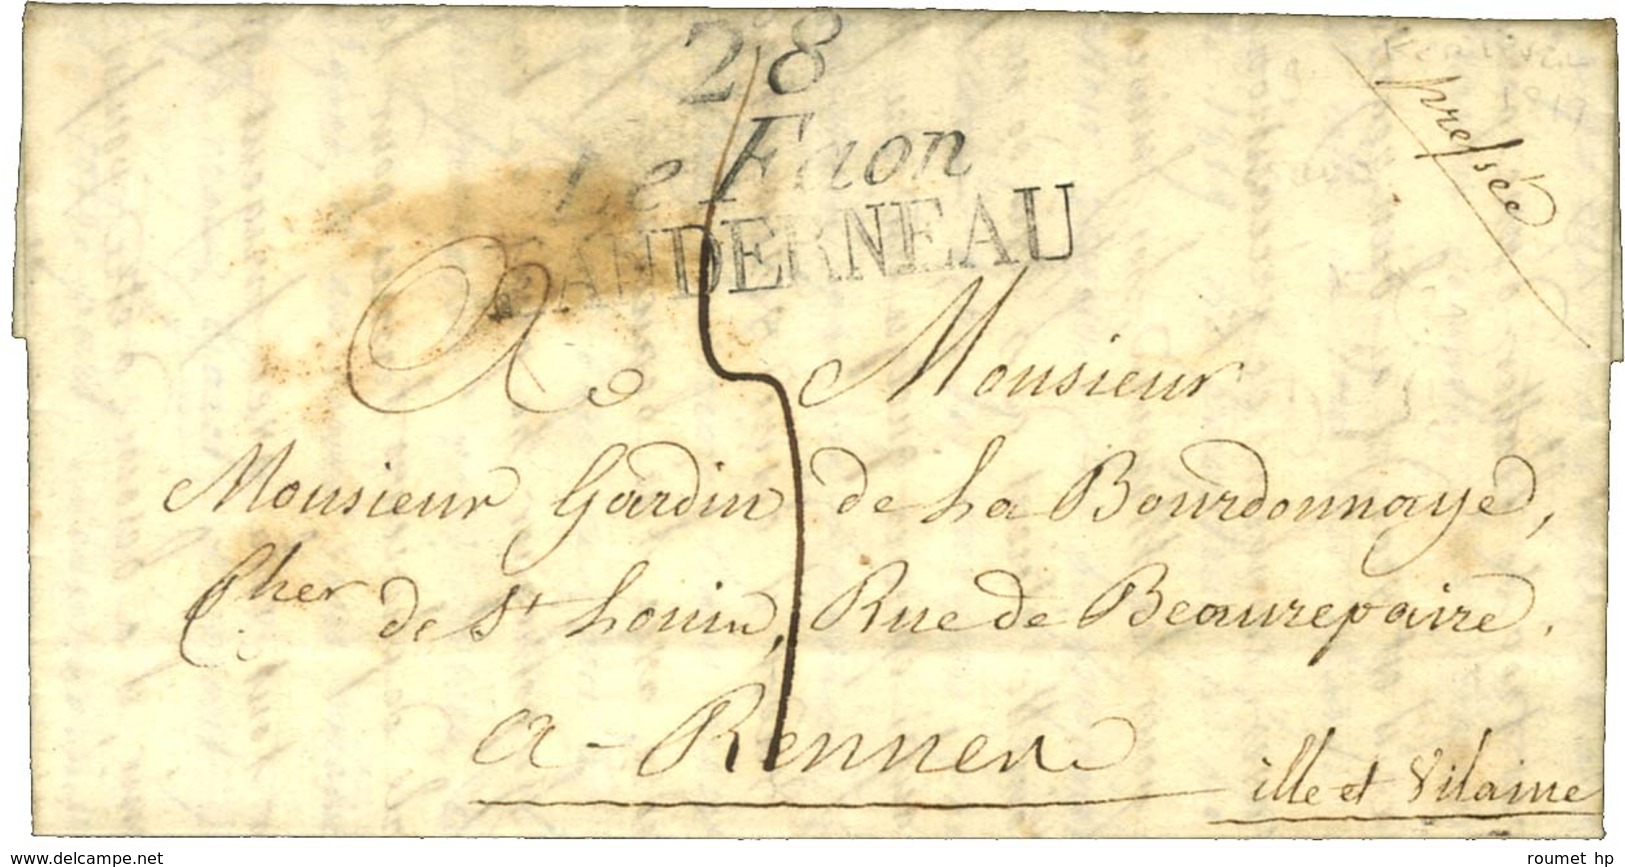 28
Le Faon
LANDERNEAU
pressée
1819
A Monsieur
Monsieur Gardin de La Bourdonnaye,
Cher de St Louis, Rue de Beaurepaire.
a - Rennes
ille et Vilaine
www.delcampe.net
roumet hp